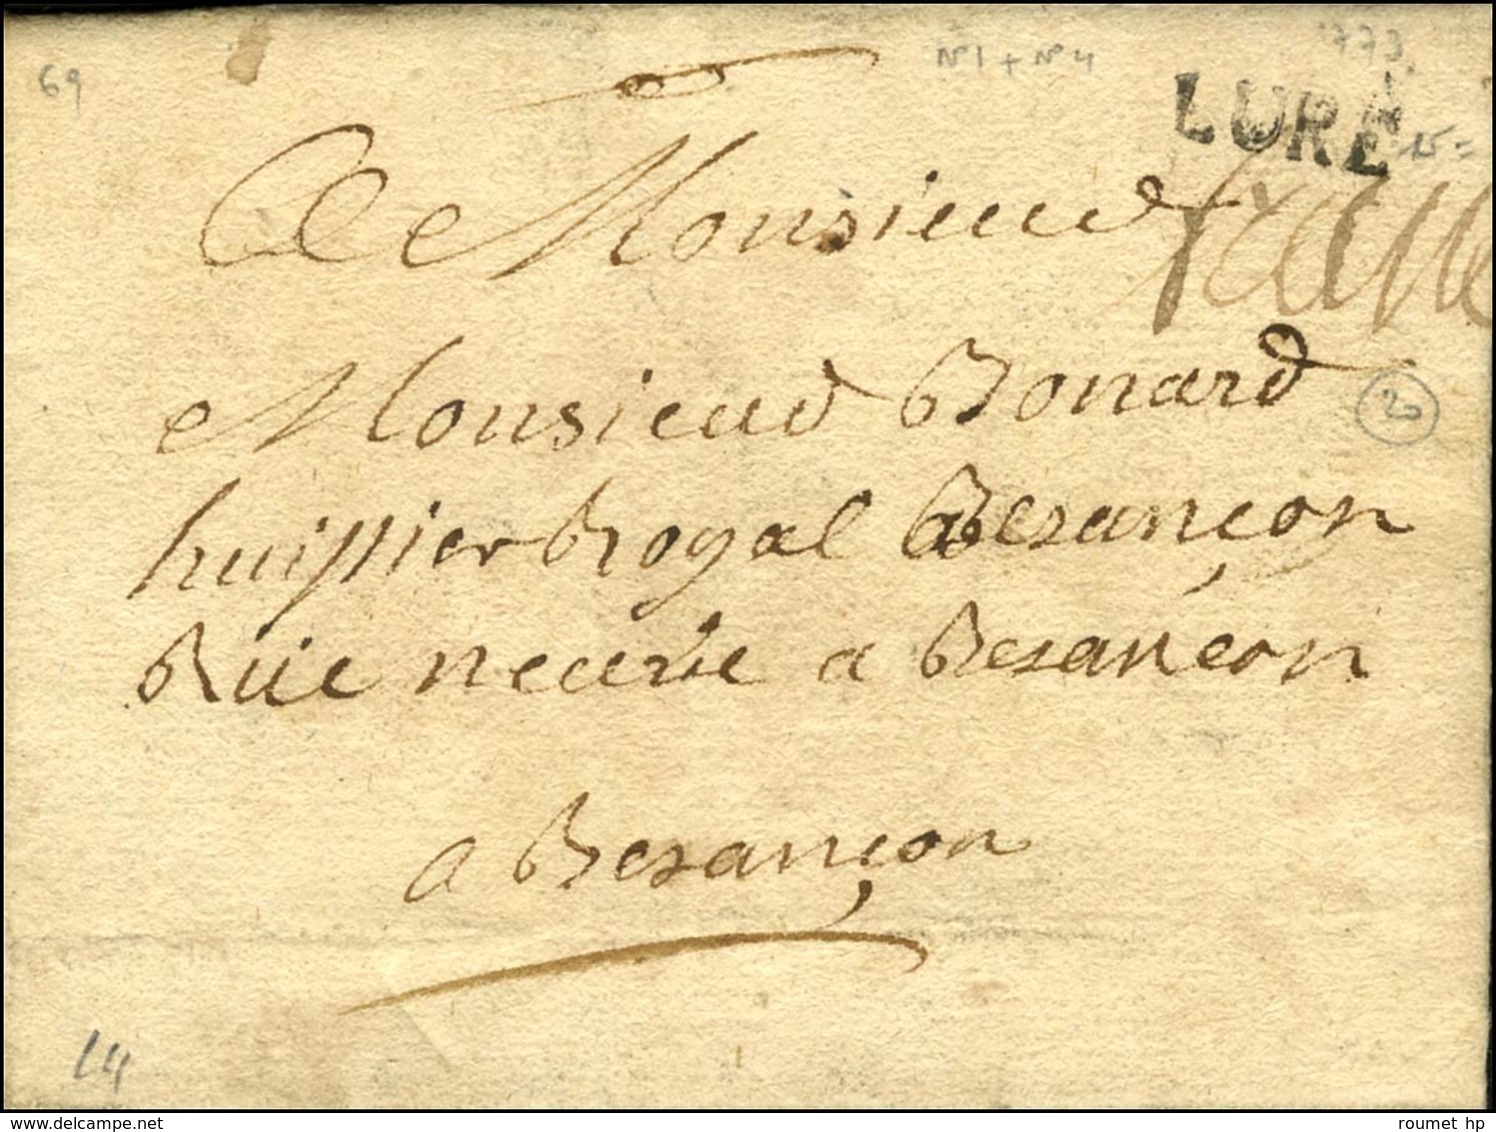 69
N°1 + N°4
1773
LURE
15=
A Monsieur
franc
Monsieur Bonard
20
huissier Royal a Besançon
Rüe neuve a Besançon
a Besançon
14
www.delcampe.net
roumet hp